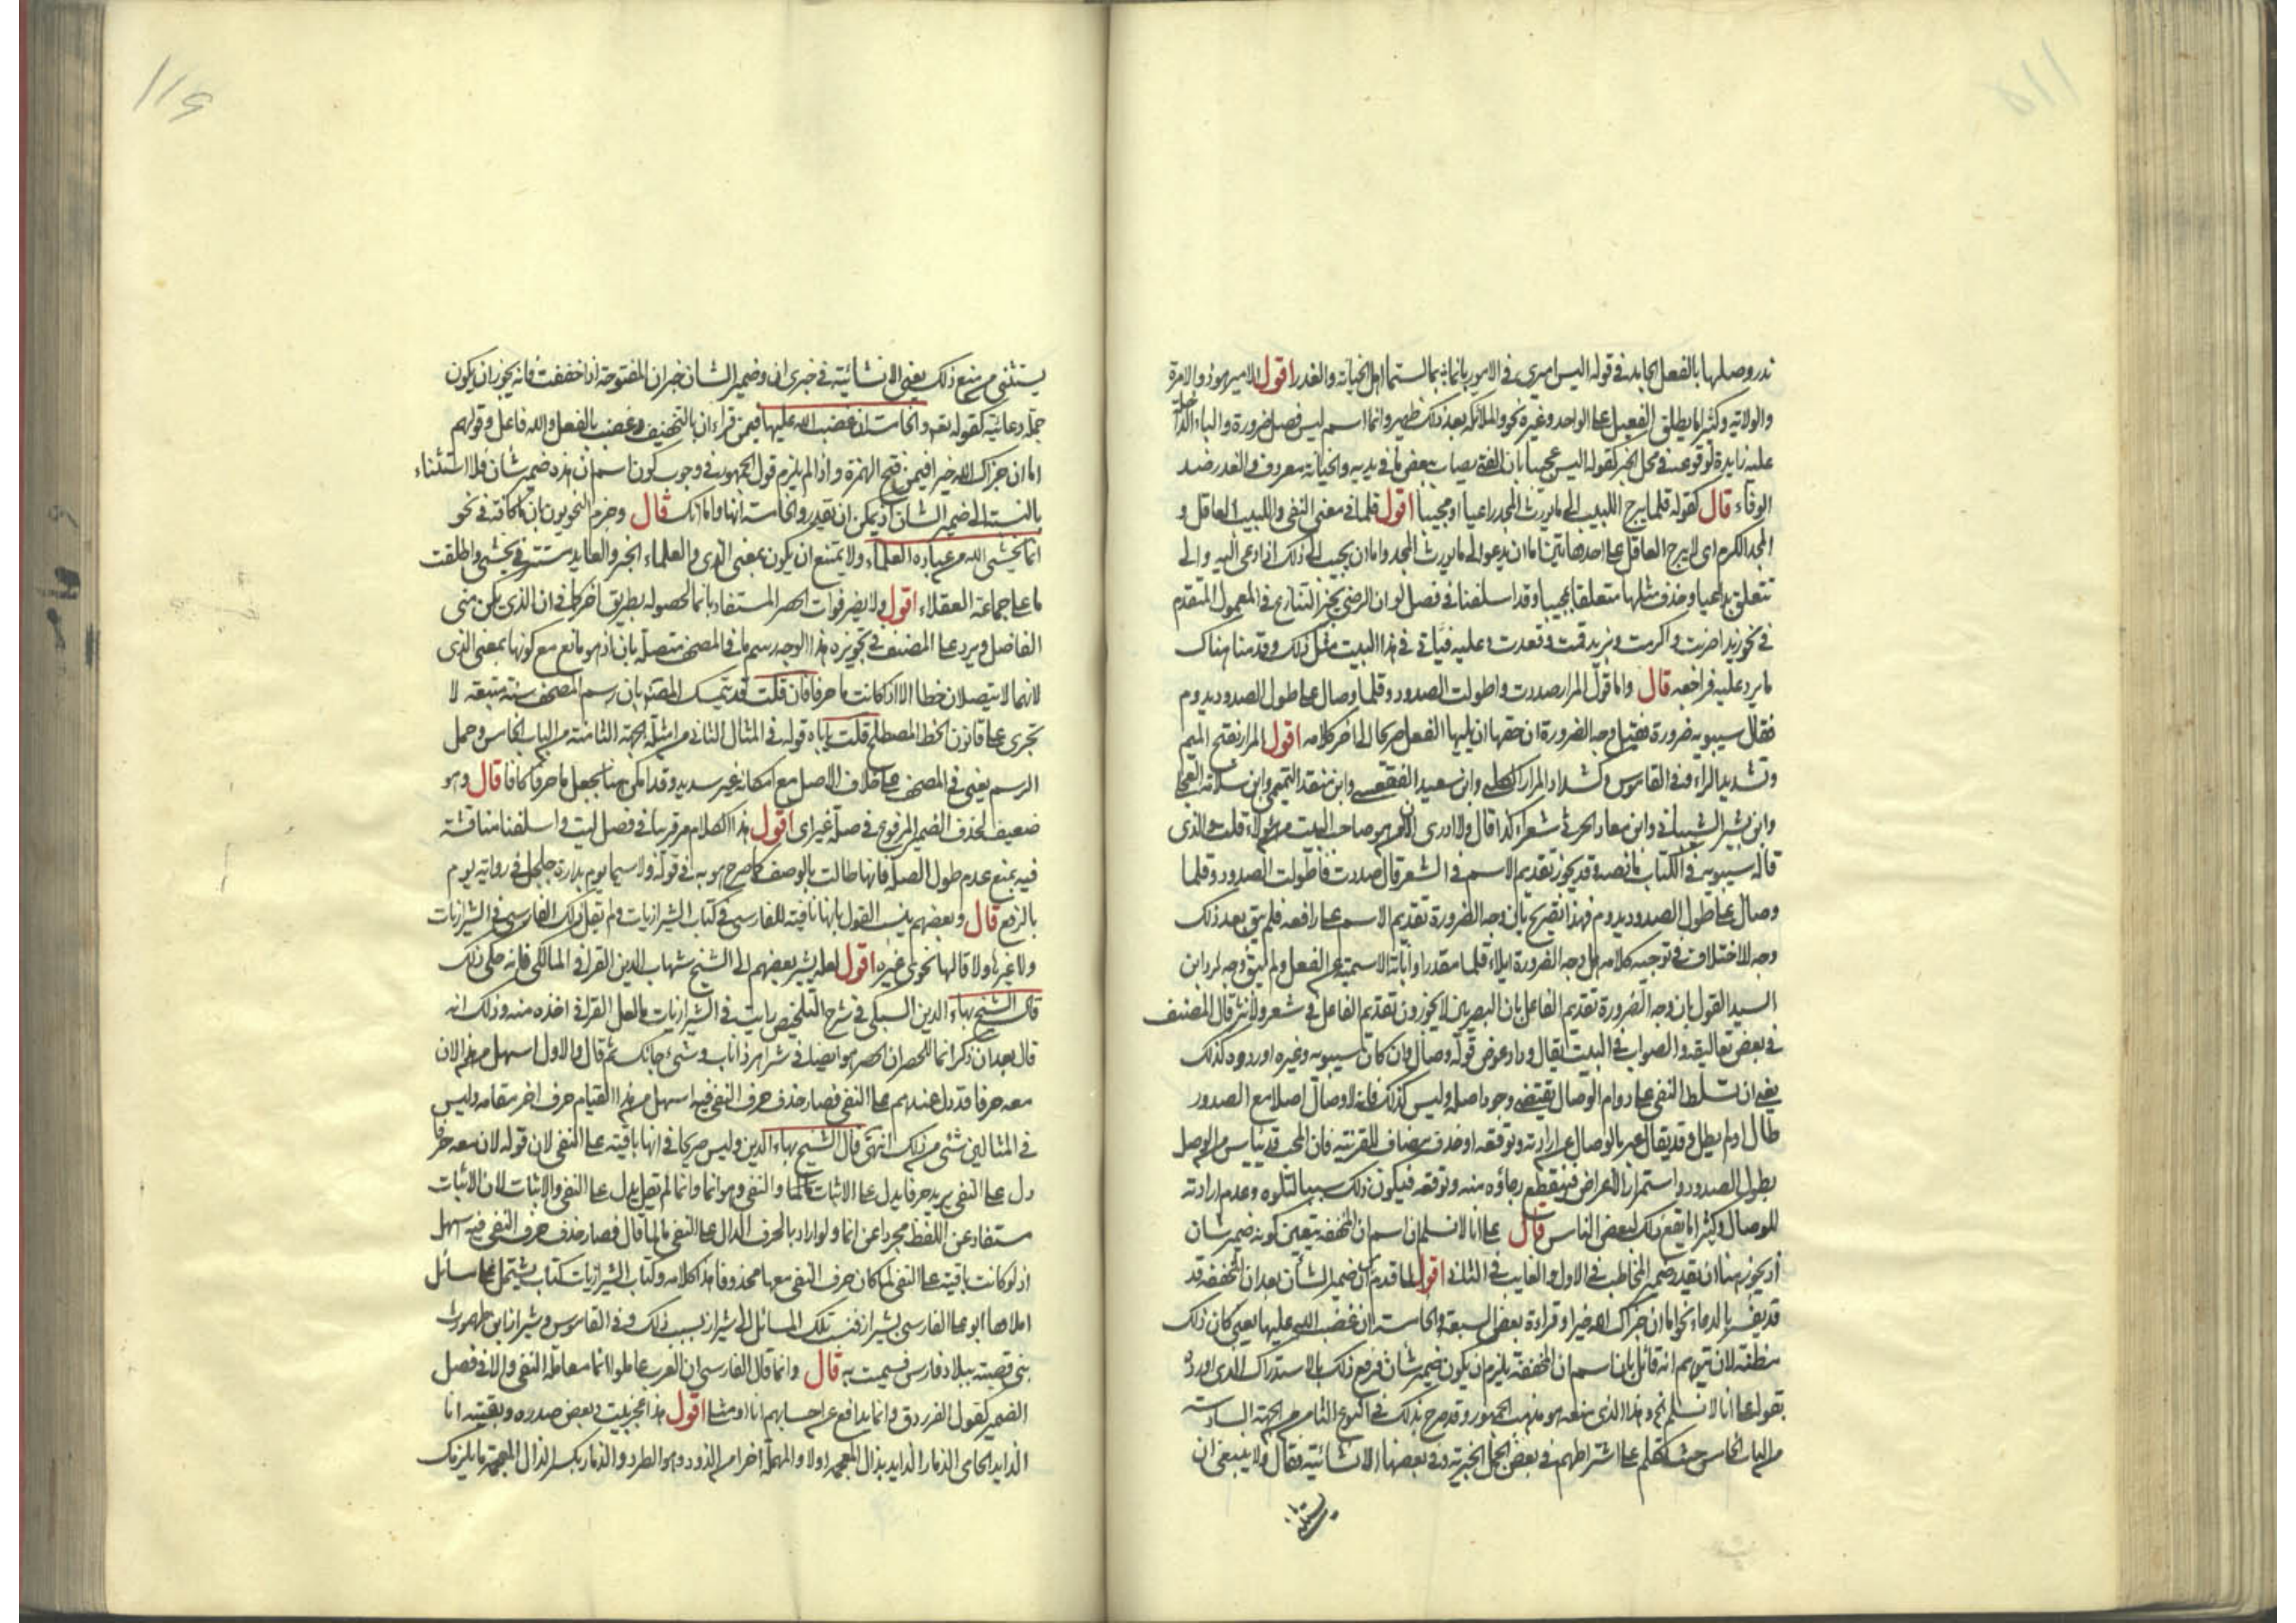 ندر وصلها بالفعل الجامد في قوله اليس اميري في الامور بانتما بما لستما اهل الخيانة والغدر اقول الامير هو ذو الامرة
والولاية وكثيرا ما يطلق الفعيل على الواحد وغيره نحو والملائكة بعد ذلك ظهير وانتما اسم ليس فصل ضرورة والباء الداخلة
عليه زايدة لوقوعه في محل الخبر كقوله اليس عجيبا بان الفتى يصاب ببعض ما في يديه والخيانة معروف والغدر ضد
الوفاء قال كقوله قلما يبرح اللبيب الى ما يورث المجد داعيا او مجيبا اقول قلما في معنى النفي واللبيب العاقل و
المجد الكرم اى لا يبرح العاقل على احد هاتين اما ان يدعو الى ما يورث المجد واما ان يجيب الى ذلك اذا دعى اليه والى
تتعلق بداعيا وحذف مثلها متعلقا بمجيبا وقد اسلفنا في فصل لو ان الرضي يجيز التنازع في المعمول المتقدم
في نحو زيدا ضربت واكرمت وبزيد قمت وقعدت وعليه فيأتي في هذا البيت مثل ذلك وقدمنا هناك
ما يرد عليه فراجعه قال واما قول المرار صددت واطولت الصدود وقلما وصال على طول الصدود يدوم
فقال سيبويه ضرورة فقيل وجه الضرورة ان حقها ان يليها الفعل صريحا الى اخر كلامه اقول المرار بفتح الميم
وتشديد الراء وفي القاموس وكشداد المرار الكلبي وابن سعيد الفقعسي وابن منقذ التميمي وابن سلامة العجلي
وابن بشير الشيباني وابن معاذ الحرشي شعراء كذا قال ولا ادرى الان هو صاحب البيت من هؤلاء قلت والذى
قاله سيبويه في الكتاب ما نصه وقد يجوز تقديم الاسم في الشعر قال صددت فاطولت الصدود وقلما
وصال على طول الصدود يدوم فهذا تصريح بان وجه الضرورة تقديم الاسم على رافعه فلم يبق بعد ذلك
وجه للاختلاف في توجيه كلامه هل وجه الضرورة ايلاء قلما مقدرا او انابة الاسمية عن الفعل ولم يبق وجه لرد ابن
السيد القول بان وجه الضرورة تقديم الفاعل بان البصريين لا يجوزون تقديم الفاعل في شعر ولا نثر قال المصنف
في بعض تعاليقه والصواب في البيت ان يقال وداد عوض قوله وصال وان كان سيبويه وغيره اوردوه كذلك
يعني ان تسلط النفي على دوام الوصال يقتضي وجود اصله وليس كذلك فانه لا وصال اصلا مع الصدود
طال او لم يطل وقد يقال عبر بالوصال عن ارادته وتوقعه او حذف مضاف للقرينة فان المحب قد ييأس من الوصل
بطول الصدود واستمرار الاعراض فينقطع رجاؤه منه وتوقعه فيكون ذلك سببا لسلوه وعدم ارادته
للوصال وكثيرا ما يقع ذلك لبعض الناس قال على انا لا نسلم ان اسم ان المخففة يتعين كونه ضمير شان
اذ يجوز هنا ان يقدر ضمير المخاطب في الاول والغايب في الثاني اقول لما قدم ان ضمير الشأن بعد ان المخففة قد
قد يفسر بالدعاء نحو اما ان جزاك الله خيرا وقراءة بعض السبعة والخامسة ان غضب الله عليها يعني كان ذلك
مظنة لان يتوهم انه قائل بان اسم ان المخففة يلزم ان يكون ضمير شان فرفع ذلك بالاستدراك الذى اورده
بقوله على انا لا نسلم الخ وهذا الذى منعه هو مذهب الجمهور وقد صرح بذلك في النوع الثامن من الجهة السادسة
من الباب الخامس حيث تكلم على اشتراطهم في بعض الجمل الخبرية وفي بعضها الانشائية فقال ولا ينبغي ان
يستثنى
يستثنى من منع ذلك يعني الانشائية في خبرى ان وضمير الشان خبر ان المفتوحة اذا خففت فانه يجوز ان يكون
جملة دعائية كقوله تعم والخامسة ان غضب الله عليها فيمن قرأ ان بالتخفيف وغضب بالفعل والله فاعل وقولهم
اما ان جزاك الله خيرا فيمن فتح الهمزة واذا لم يلزم قول الجمهور في وجوب كون اسم ان هذه ضمير شان فلا استثناء
بالنسبة الى ضمير الشان اذ يمكن ان تقدر والخامسة انها واما انك قال وجزم النحويون بان ما كافة في نحو
انما يخشى الله من عباده العلماء ولا يمتنع ان يكون بمعنى الذى والعلماء الخبر والعايد مستتر في يخشى واطلقت
ما على جماعة العقلاء اقول ولا يضر فوات الحصر المستفاد بانما لحصوله بطريق اخر كما في ان الذى يكرمني
الفاضل ويرد على المصنف في تجويزه هذا الوجه رسم ما في المصحف متصلة بان اذ هو مانع مع كونها بمعنى الذى
لانهما لا يتصلان خطا الا اذا كانت ما حرفا فان قلت قد يتمسك المصنف بان رسم المصحف سنة متبعة لا
تجرى على قانون الخط المصطلح قلت يأباه قوله في المثال الثاني من امثلة الجهة الثامنة من الباب الخامس وحمل
الرسم يعني في المصحف على خلاف الاصل مع امكانه غير سديد وقد امكن هنا بجعل ما حرفا كافا قال وهو
ضعيف لحذف الضمير المرفوع في صلة غير اى اقول هذا الكلام مر قريبا في فصل ليت واسلفنا مناقشته
فيه بمنع عدم طول الصلة فانها طالت بالوصف كما صرح هو به في قوله ولا سيما يوم بدارة جلجل في رواية يوم
بالرفع قال وبعضهم ينسب القول بانها نافية للفارسي في كتاب الشيرازيات ولم يقل ذلك الفارسي في الشيرازيات
ولا غيرها ولا قالها نحوى غيره اقول لعله يشير ببعضهم الى الشيخ شهاب الدين القرافي المالكي فانه حكى ذلك
قال الشيخ بهاء الدين السبكي في شرح التلخيص رأيت في الشيرازيات ما لعل القرافي اخذه منه وذلك انه
قال بعد ان ذكر انما للحصر ان الحصر هو ايضا في شر اهر ذا ناب وشيء جاء بك ثم قال والاول اسهل من هذا لان
معه حرفا قد دل عندهم على النفي فصار حذف حرف النفي فيه اسهل من هذا لقيام حرف اخر مقامه وليس
في المثالين شئ من ذلك انتهى قال الشيخ بهاء الدين وليس صريحا في انها باقية على النفي لان قوله لان معه حرفا
دل على النفي يريد حرفا يدل على الاثبات والنفي وهو انما وانما لم يقل يدل على النفي والاثبات لان الاثبات
مستفاد عن اللفظ مجردا عن انما ولو اراد بالحرف الدال على النفي ما لما قال فصار حذف حرف النفي فيه سهل
اذ لو كانت باقية على النفي لما كان حرف النفي معها محذوفا هذا كلامه وكتاب الشيرازيات كتاب يشتمل على مسائل
املاها ابو على الفارسي بشيراز فنسبت تلك المسائل الى شيراز بسبب ذلك وفي القاموس وشيراز بن طهمورث
بنى قصبة ببلاد فارس فسميت به قال وانما قال الفارسي ان العرب عاملوا انما معاملة النفي والا في فصل
الضمير كقول الفرزدق وانما يدافع عن احسابهم انا او مثلى اقول هذا عجز بيت وبعض صدره وبقيته انا
الذايد الحامى الذمار الذايد بذال المعجمة اولا والمهملة اخرا من الذود وهو الطرد والذمار بكسر الذال المعجمة ما يلزمك